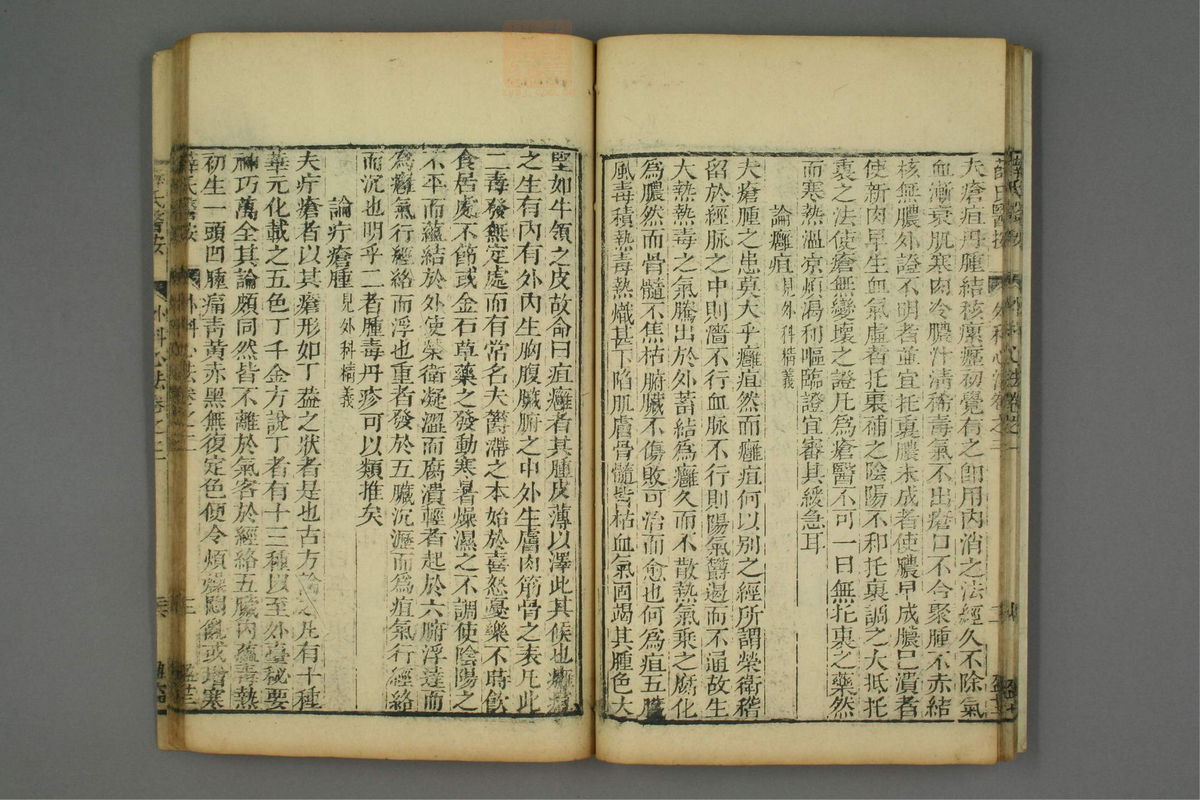 夫瘡疽丹腫結核瘰癧初覺有之即用內消之法經久不除氣
血漸衰肌寒肉冷膿汁清稀毒氣不出瘡口不合聚腫不赤結
核無膿外證不明者並宜托裏膿未成者使膿早成膿已潰者
使新肉早生血氣虛者托裏補之陰陽不和托裏調之大抵托
裏之法使瘡無變壞之證凡為瘡醫不可一日無托裏之藥然
而寒熱溫涼煩渴利嘔臨證宜審其緩急耳
論癰疽見外科精義
夫瘡腫之患莫大乎癰疽然而癰疽何以別之經所謂榮衛稽
留於經脉之中則濇不行血脉不行則陽氣鬱遏而不通故生
大熱熱毒之氣騰出於外蓄結為癰久而不散熱氣乘之腐化
為膿然而骨髓不焦枯腑臟不傷敗可治而愈也何為疽五臟
風毒積熱毒熱熾甚下陷肌膚骨髓皆枯血氣涸竭其腫色大
堅如牛領之皮故命曰疽癰者其腫皮薄以澤此其候也癰疽
之生有內有外內生胸腹臟腑之中外生膚肉筋骨之表凡此
二毒發無定處而有常名夫鬱滯之本始於喜怒憂樂不時飲
食居處不節或金石草藥之發動寒暑燥濕之不調使陰陽之
不平而蘊結於外使榮衛凝澀而腐潰輕者起於六腑浮達而
為癰氣行經絡而浮也重者發於五臟沉澀而為疽氣行經絡
而沉也明乎二者腫毒丹疹可以類推矣
論疔瘡腫見外科精義
夫疔瘡者以其瘡形如丁葢之狀者是也古方論之凡有十種
華元化載之五色丁千金方說丁者有十三種以至外臺秘要
神巧萬全其論頗同然皆不離於氣客於經絡五臟內蘊毒熱
初生一頭凹腫痛青黃赤黑無復定色便令煩燥悶亂或增寒
薛氏醫按 外科心法卷之二 三